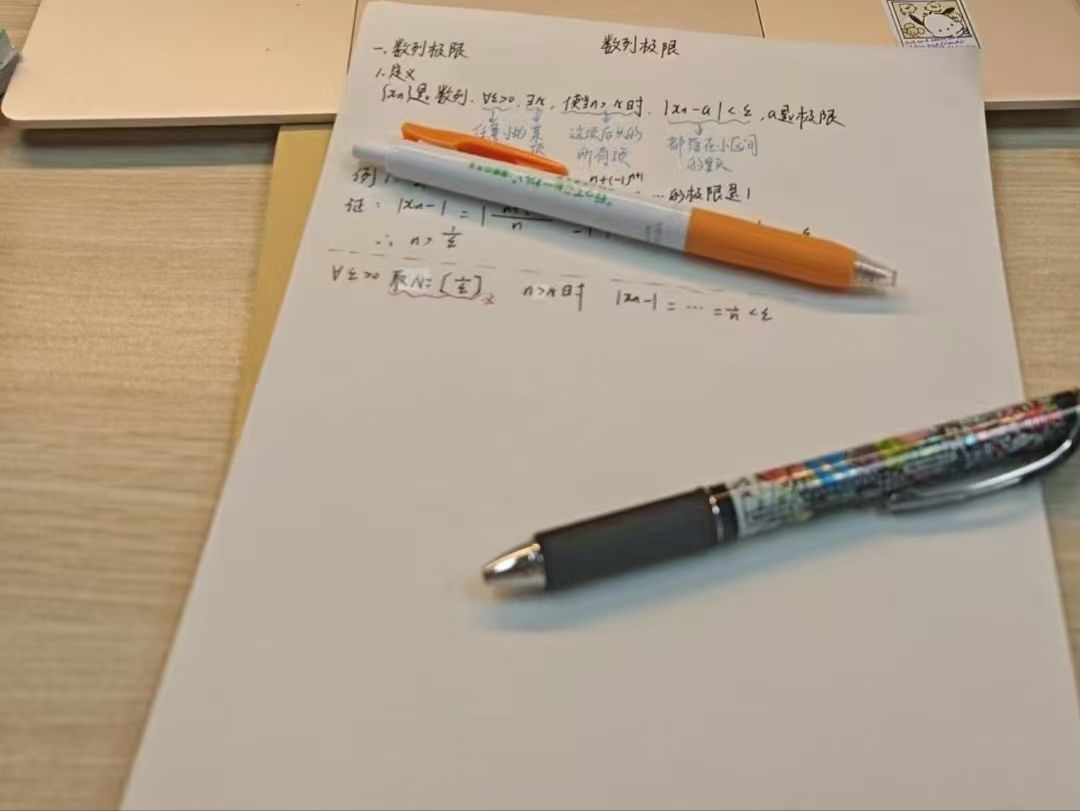 数列极限
一.数列极限
1.定义
{xn}是数列. ∀ε>0. ∃N, 使当n>N时. |xn-a|<ε, a是极限
任意小的 某项 这项后头的所有项 都落在小区间的里头
例1. n+(-1)ⁿ⁻¹ … 的极限是1
证: |xn-1| = | n -1
∴ n > 1/ε
∀ε>0 取N=[1/ε] n>N时 |xn-1| = … = 1/n < ε